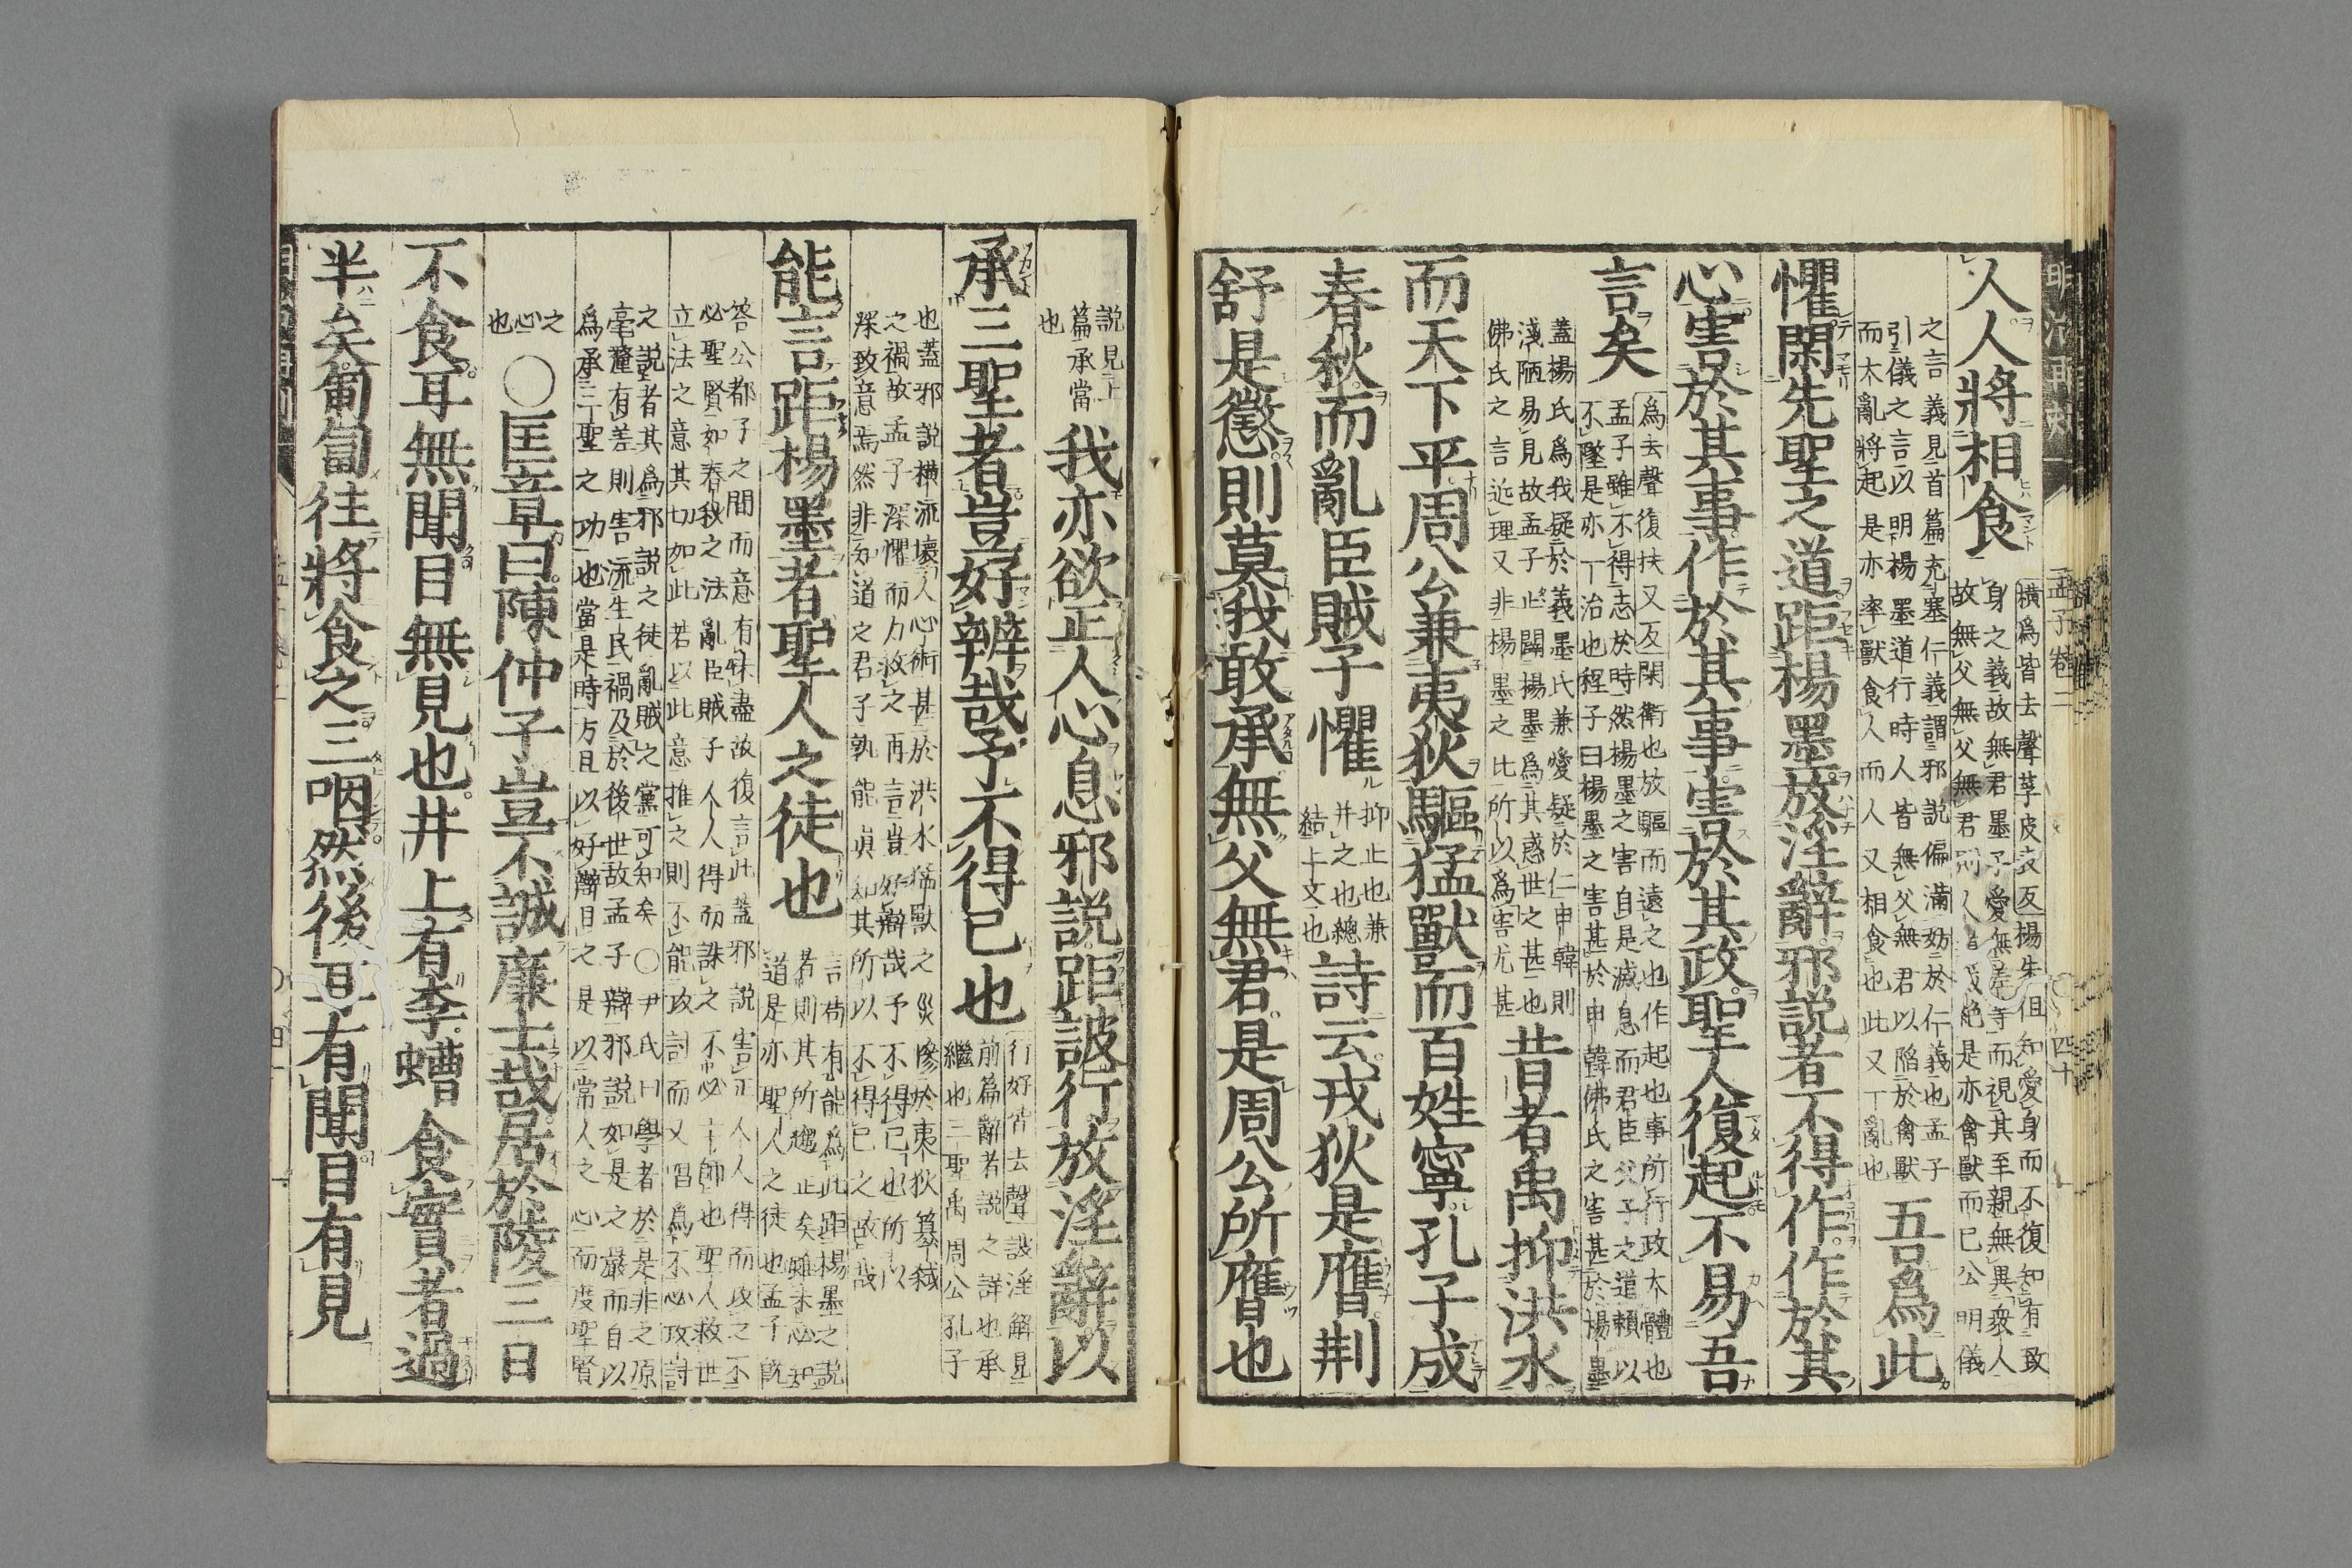 人人將相食
橫爲皆去聲莩皮表反楊朱但知愛身而不復知有致
身之義故無君墨子愛無差等而視其至親無異衆人
故無父無父無君則人道滅絶是亦禽獸而已公明儀
之言義見首篇充塞仁義謂邪說徧滿妨於仁義也孟子
引儀之言以明楊墨道行時人皆無父無君以陷於禽獸
而大亂將起是亦率獸食人而人又相食也此又一亂也
吾爲此
懼閑先聖之道距楊墨放淫辭邪說者不得作作於其
心害於其事作於其事害於其政聖人復起不易吾
言矣
爲去聲復扶又反閑衛也放驅而遠之也作起也事所行政大體也
孟子雖不得志於時然楊墨之害自是滅息而君臣父子之道賴以
不墜是亦一治也程子曰楊墨之害甚於申韓佛氏之害甚於楊墨
蓋楊氏爲我疑於義墨氏兼愛疑於仁申韓則
淺陋易見故孟子止闢楊墨爲其惑世之甚也
佛氏之言近理又非楊墨之比所以爲害尤甚
昔者禹抑洪水
而天下平周公兼夷狄驅猛獸而百姓寧孔子成
春秋而亂臣賊子懼
抑止也兼
并之也總
結上文也
詩云戎狄是膺荆
舒是懲則莫我敢承無父無君是周公所膺也
說見上
篇承當
也
我亦欲正人心息邪說距詖行放淫辭以
承三聖者豈好辨哉予不得已也
行好皆去聲詖淫解見
前篇辭者說之詳也承
繼也三聖禹周公孔子
也蓋邪說橫流壞人心術甚於洪水猛獸之災慘於夷狄簒弑
之禍故孟子深懼而力救之再言豈好辯哉予不得已也所以
深致意焉然非知道之君子孰能眞知其所以不得已之故哉
能言距楊墨者聖人之徒也
言苟有能爲此距楊墨之說
者則其所趨正矣雖未必知
道是亦聖人之徒也孟子旣
答公都子之間而意有未盡故復言此蓋邪說害正人人得而攻之不
必聖賢如春秋之法亂臣賊子人人得而誅之不必士師也聖人救世
立法之意其切如此若以此意推之則不能攻討而又唱爲不必攻討
之說者其爲邪說之徒亂賊之黨可知矣〇尹氏曰學者於是非之原
毫釐有差則害流生民禍及於後世故孟子辯邪說如是之嚴而自以
爲承三聖之功也當是時方且以好辯目之是以常人之心而度聖賢
之
心
也
〇匡章曰陳仲子豈不誠廉士哉居於陵三日
不食耳無聞目無見也井上有李螬食實者過
半矣匍匐往將食之三咽然後耳有聞目有見
孟子卷三
四十